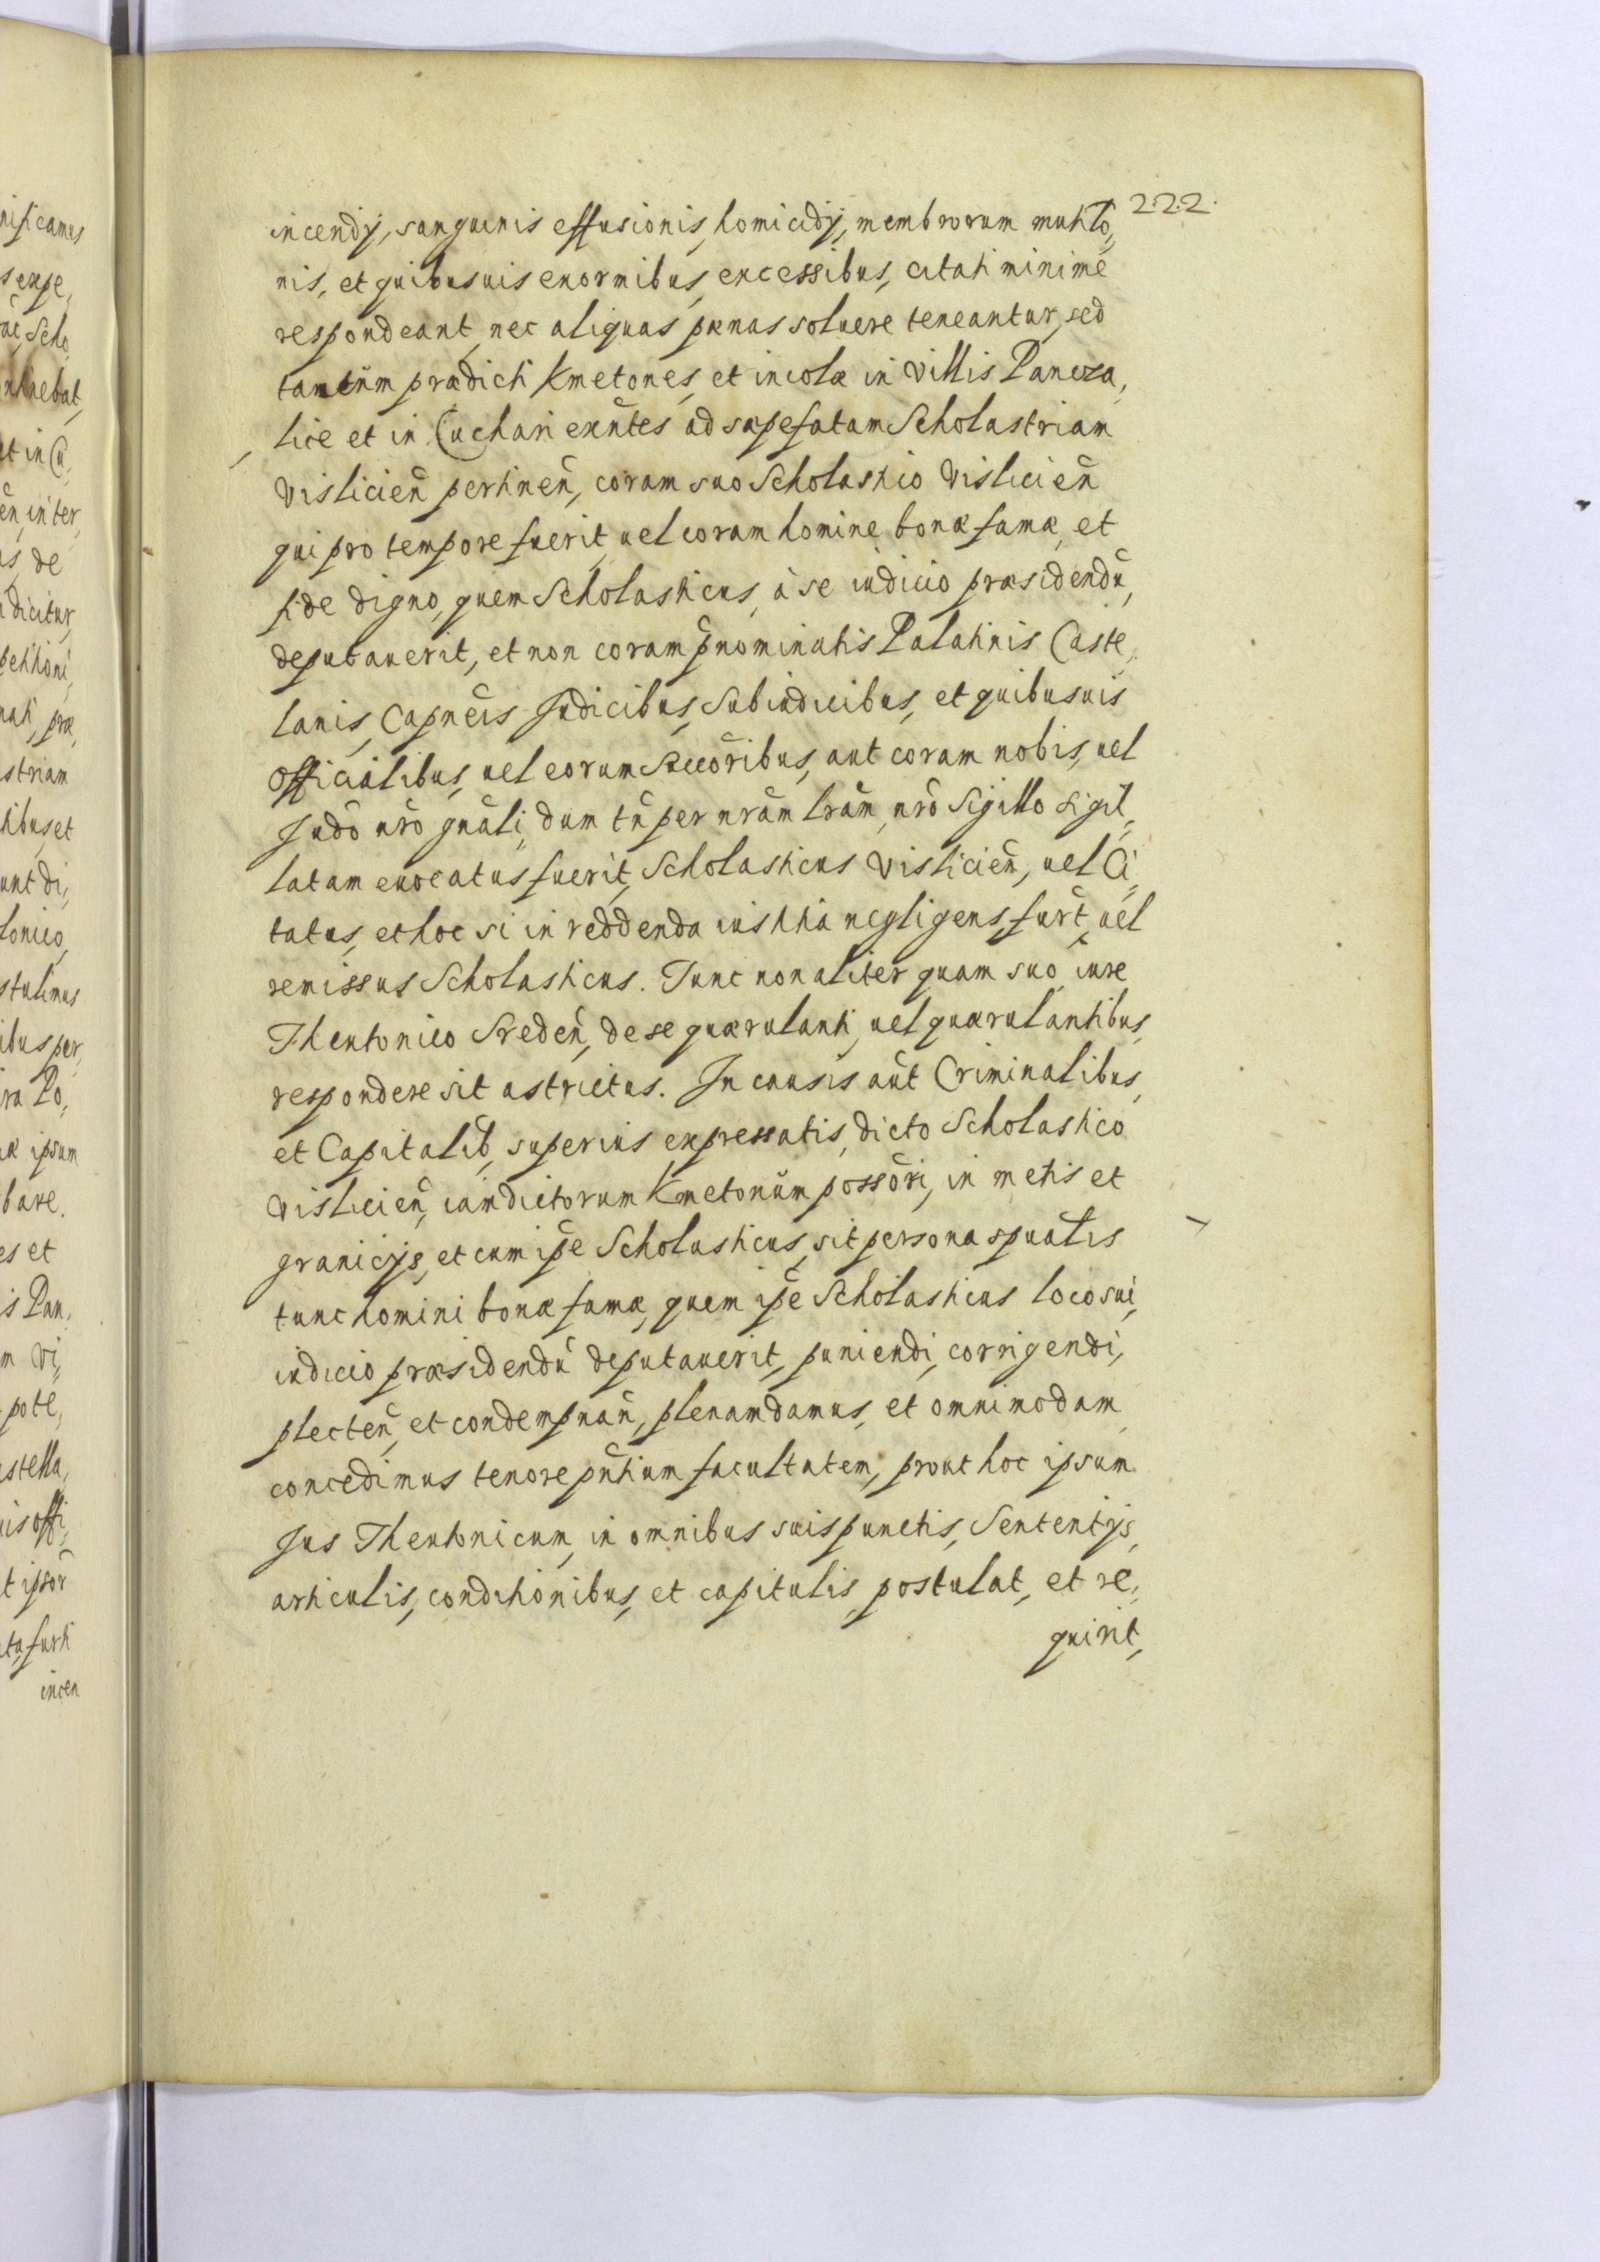 nificamus
s expe,
ac Scho,
ontnebat,
et in Cu,
en, inter,
as, de
dicitur,
petitioni,
nati, præ,
astriam
tibus, et
unt di,
lonico,
stulimus
ibus per,
ra Po,
æ ipsum
bare.
es et
is Pan,
m Vi,
pote,
astella,
uis offi,
t ipsor̃
ata, furti
incen
222.
incendÿ, sanguinis effusionis, homicidÿ, membrorum mutilo,
nis, et quibusuis enormibus, excessibus, citati minime
respondeant, nec aliquas pænas soluere teneantur, sed
tantum prædicti Kmetones, et incolæ in villis Pancza,
lice et in Cuchari exn̄tes ad sæpefatam Scholastriam
Vislicien̄ pertinen̄, coram suo Scholastico Vislicien̄
qui pro tempore fuerit, uel coram homine bonæ famæ, et
fide digno, quem Scholasticus, à se iudicio præsidendū,
deputauerit, et non coram p̄nominatis Palatinis Caste,
lanis, Capn̄eis Judicibus, Subiudicibus, et quibusuis
Officialibus, uel eorum Succōribus, aut coram nobis, uel
Judō nrō gnāli, dum tn̄ per nrām lrām, nrō Sigillo sigil,
latam euocatus fuerit, Scholasticus Vislicien̄, uel Ci,
tatus, et hoc si in reddenda iustitia negligens, furt̄, uel
remissus Scholasticus. Tunc non aliter quam suo iure
Theutonico Sreden̄, de se quærulanti, uel quærulantibus,
respondere sit astrictus. In causis aūt Criminalibus,
et Capitalib, superius expressatis, dicto Scholastico
Vislicien̄, iamdictorum Kmetonūm possōri, in metis et
granicÿs, et cum ip̄e Scholasticus, sit persona spuālis
tunc homini bonæ famæ, quem ip̄e Scholasticus loco sui,
iudicio præsidendū deputauerit, puniendi, corrigendi,
plecten̄, et condempnan̄, plenam damus, et omnimodam
concedimus tenore pn̄tium facultatem, prout hoc ipsum
Jus Theutonicum, in omnibus suis punctis, Sententÿs,
articulis, conditionibus, et capitulis, postulat, et re,
quirit,